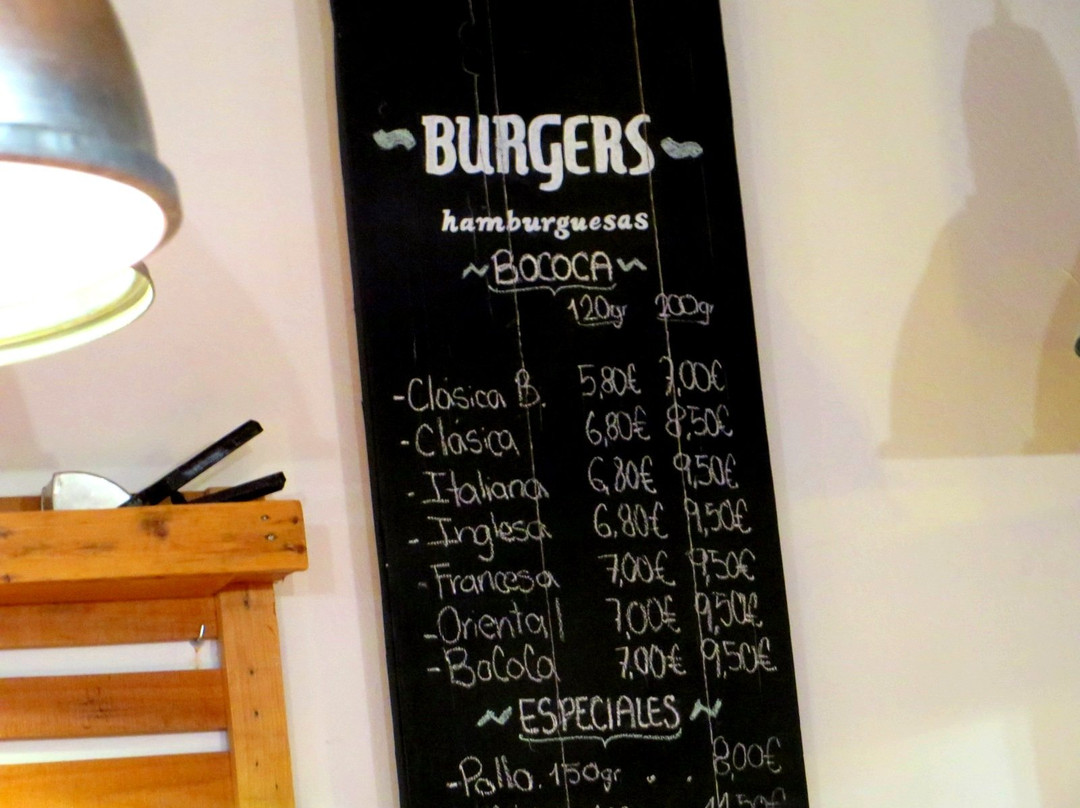 BURGERS
hamburguesas
~BOCOCA~
120gr 200gr
-Clásica B. 5,80€ 7,00€
-Clásica 6,80€ 8,50€
-Italiana 6,80€ 9,50€
-Inglesa 6,80€ 9,50€
-Francesa 7,00€ 9,50€
-Oriental 7,00€ 9,50€
-BoCoCa 7,00€ 9,50€
~ESPECIALES~
-Pollo. 150gr . . 8,00€